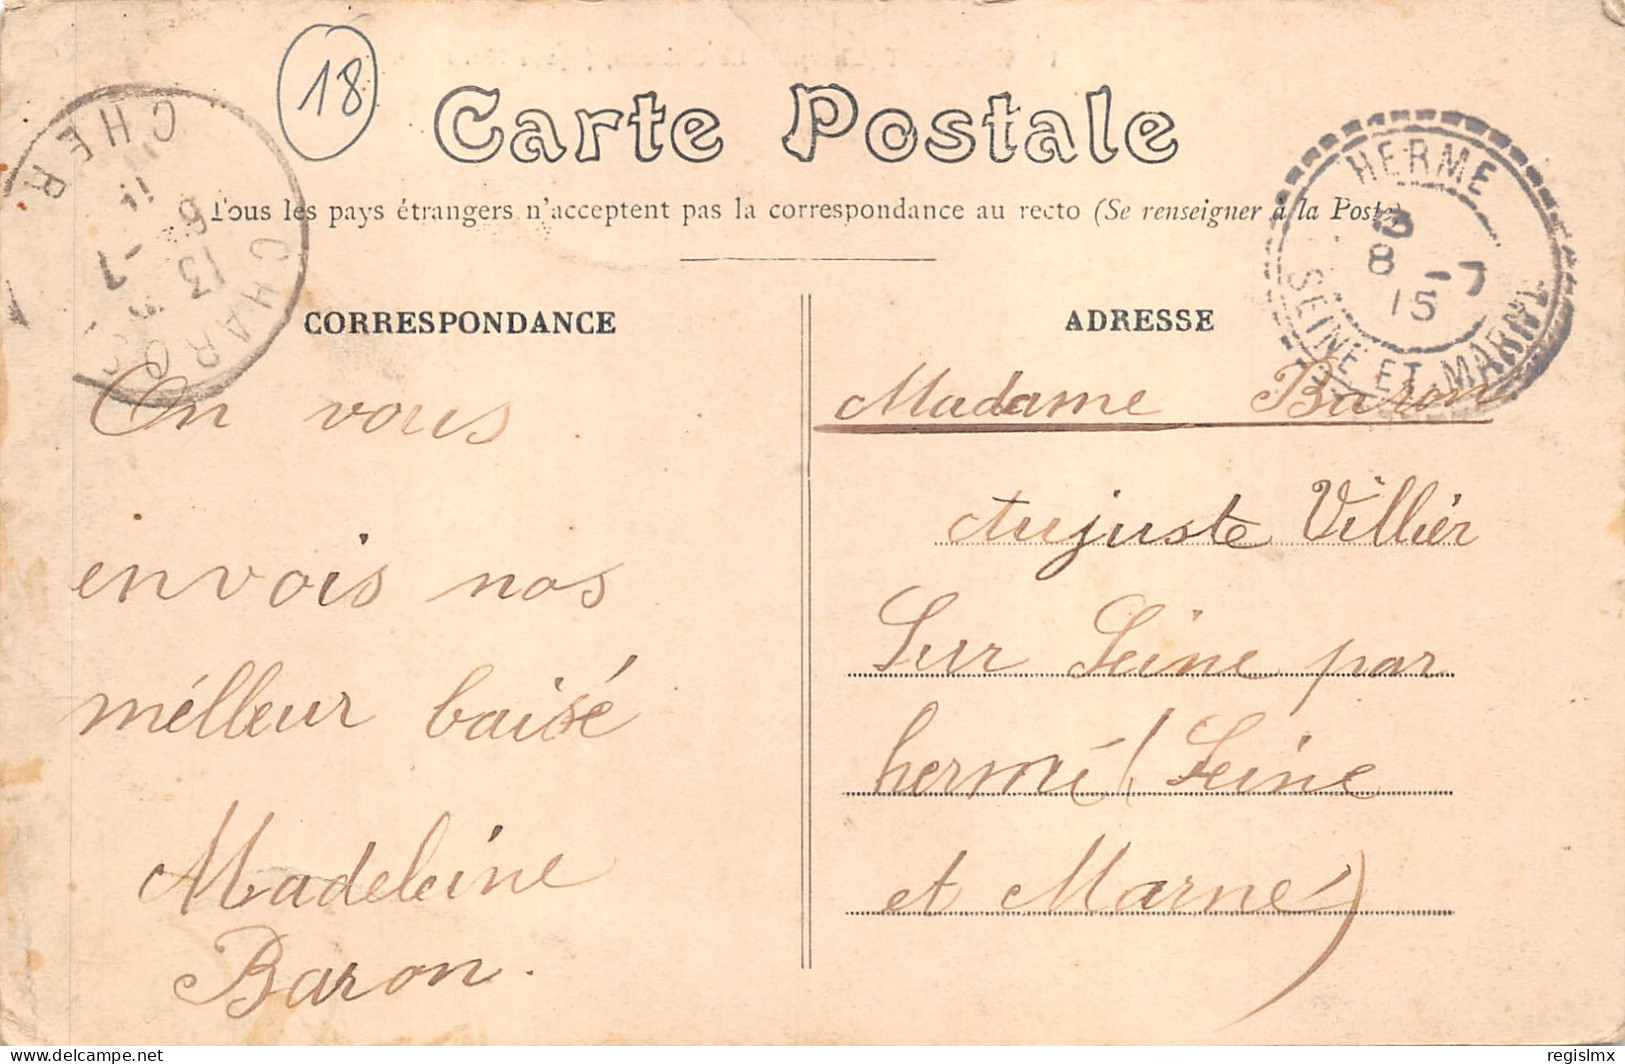 18
Carte Postale
Tous les pays étrangers n'acceptent pas la correspondance au recto (Se renseigner à la Poste)
CHER
CHAROST
13
6 -7
HERME
8 -7
15
SEINE ET MARNE
CORRESPONDANCE
On vous
envois nos
mélleur baisé
Madeleine
Baron.
ADRESSE
Madame Baron
Aujuste Villiér
Sur Seine par
hermé (Seine
et Marne)
regislmx
www.delcampe.net